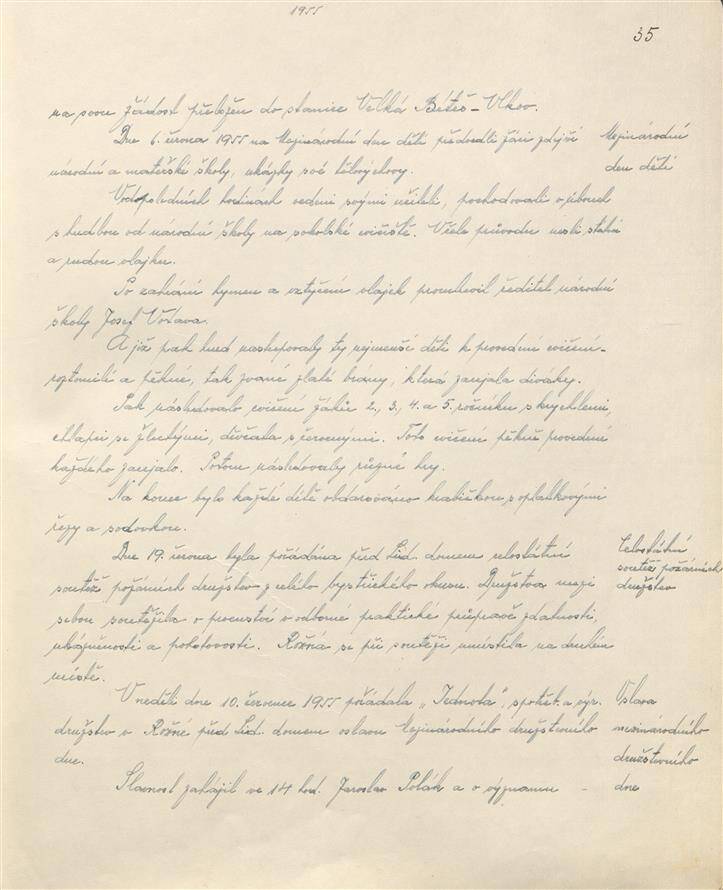 1955
35
na svou žádost přeložen do stanice Velká Bíteš - Vlkov.
Dne 6. června 1955 na Mezinárodní den dětí předvedli žáci zdejší
Mezinárodní
národní a mateřské školy, ukázky své tělovýchovy.
den dětí
V odpoledních hodinách vedeni svými učiteli, pochodovali v útvarech
s hudbou od národní školy na sokolské cvičiště. V čele průvodu nesli státní
a rudou vlajku.
Po zahrání hymen a vztyčení vlajek promluvil ředitel národní
školy Josef Voťava.
A již pak hned nastupovaly ty nejmenší děti k provedení cvičení -
roztomilé a pěkné, tak zvané zlaté brány, která zaujala diváky.
Pak následovalo cvičení žáků 2., 3., 4. a 5. ročníku s krychlemi,
chlapci se žlutými, děvčata s červenými. Toto cvičení pěkně provedené
každého zaujalo. Potom následovaly různé hry.
Na konec bylo každé dítě obdarováno krabičkou s oplatkovými
řezy a sodovkou.
Dne 19. června byla pořádána před Lid. domem celostátní
Celostátní
soutěž požárních družstev z celého bystřického okresu. Družstva mezi
soutěž požárních
družstev
sebou soutěžila o prvenství v odborné praktické průpravě zdatnosti,
ukázněnosti a pohotovosti. Rožná se při soutěži umístila na druhém
místě.
V neděli dne 10. července 1955 pořádala "Jednota", spotřeb. a výr.
Oslava
družstvo v Rožné před Lid. domem oslavu Mezinárodního družstevního
mezinárodního
dne.
družstevního
Slavnost zahájil ve 14 hod. Jaroslav Polák a o významu -
dne